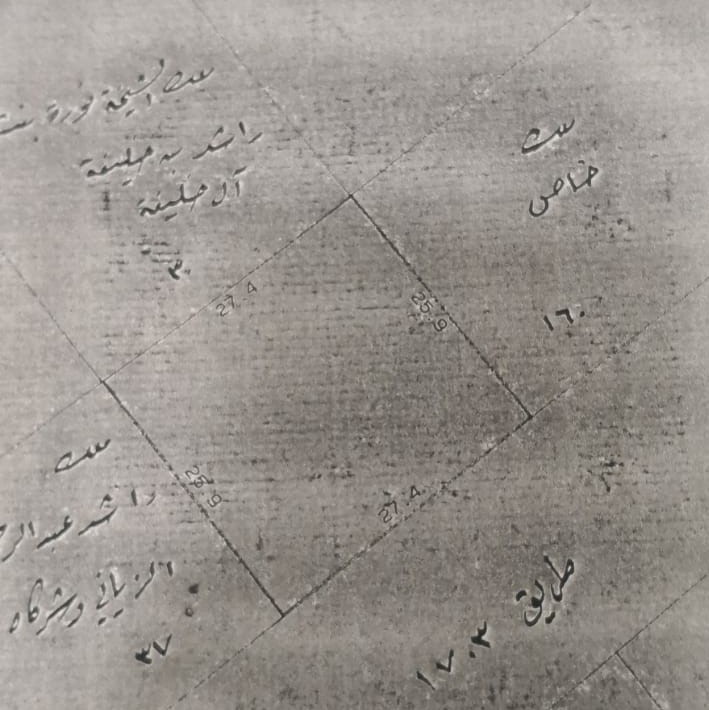 بيت الشيخة نورة بنت
راشد بن خليفة
آل خليفة
٣٠
بيت
خاص
١٦٠
27.4
25.9
25.9
27.4
بيت
راشد عبد الرح
الزياني وشركاه
٣٧
طريق ١٧٠٣